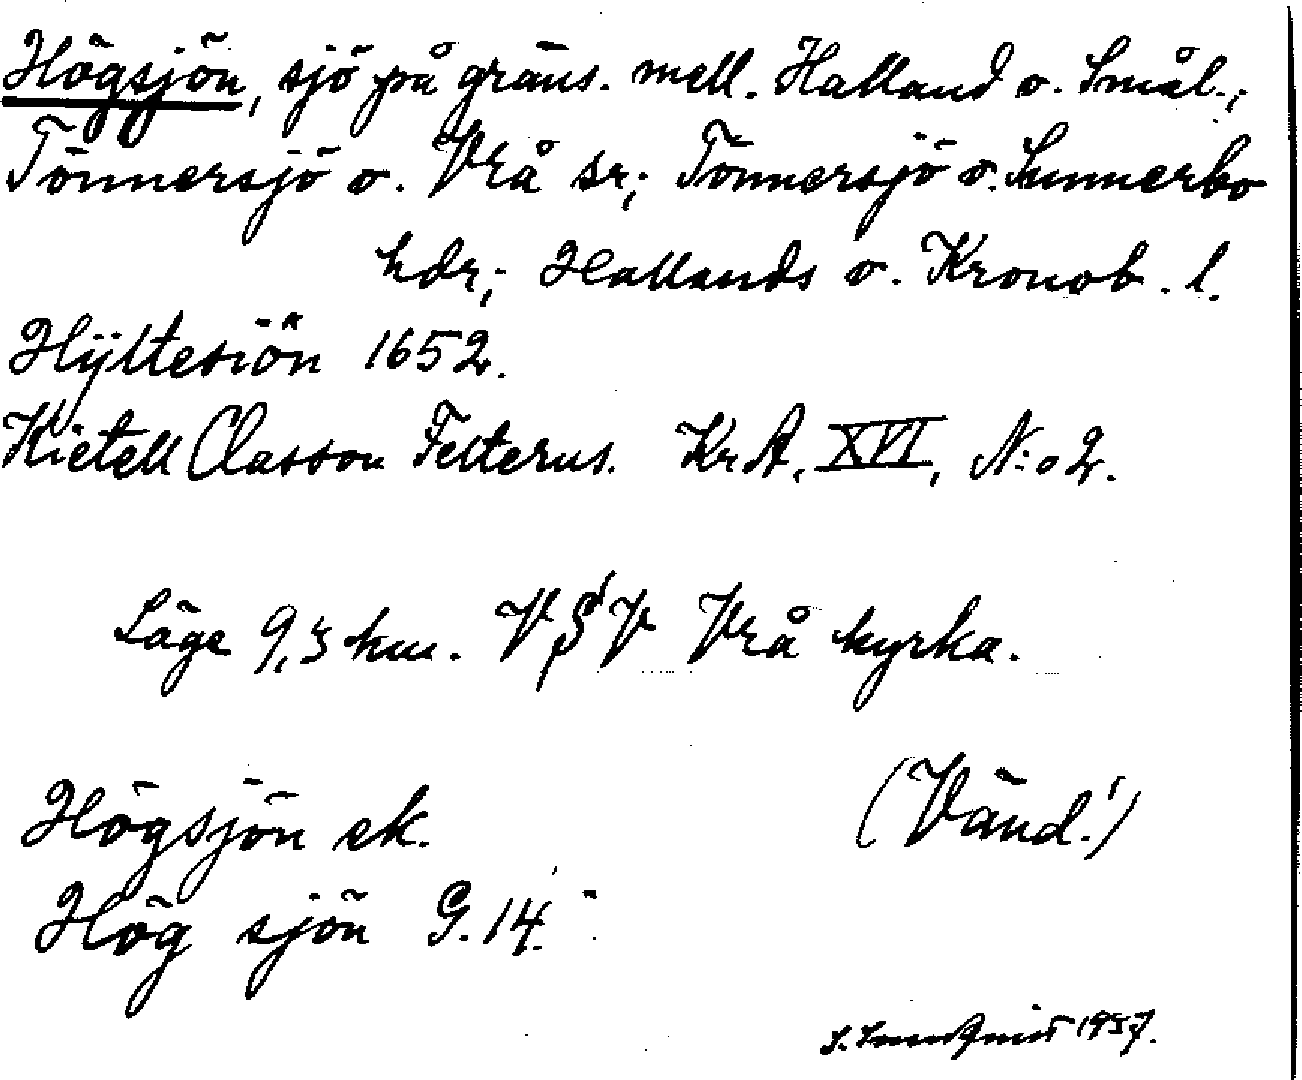 Högsjön, sjö på gräns. mell. Halland o. Smål.;
Tönnersjö o. Vrå sr; Tönnersjö o. Sunnerbo
hdr; Hallands o. Kronob. l.
Hÿltesiön 1652.
Kietell Classon Felterus. KrA, XVI, N:o 2.
Läge 9,5 km. V S V Vrå kyrka.
Högsjön ek.
(Vänd!)
Hög sjön G. 14.
1937.